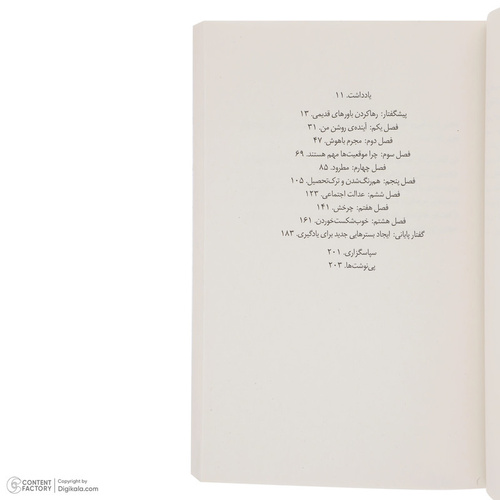 یادداشت. ۱۱
پیشگفتار: رهاکردن باورهای قدیمی. ۱۳
فصل یکم: آینده‌ی روشن من. ۳۱
فصل دوم: مجرم باهوش. ۴۷
فصل سوم: چرا موقعیت‌ها مهم هستند. ۶۹
فصل چهارم: مطرود. ۸۵
فصل پنجم: هم‌رنگ‌شدن و ترک‌تحصیل. ۱۰۵
فصل ششم: عدالت اجتماعی. ۱۲۳
فصل هفتم: چرخش. ۱۴۱
فصل هشتم: خوب‌شکست‌خوردن. ۱۶۱
گفتار پایانی: ایجاد بسترهایی جدید برای یادگیری. ۱۸۳
سپاسگزاری. ۲۰۱
پی‌نوشت‌ها. ۲۰۳
CONTENT FACTORY
Copyright by Digikala.com